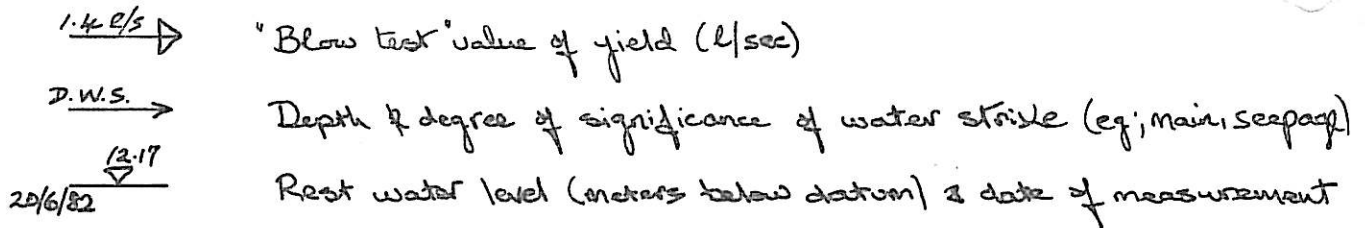 1.4 l/s "Blow test" value of yield (l/sec)
D.W.S. Depth & degree of significance of water strike (eg; main, seepage)
12.17
20/6/82 Rest water level (meters below datum) & date of measurement